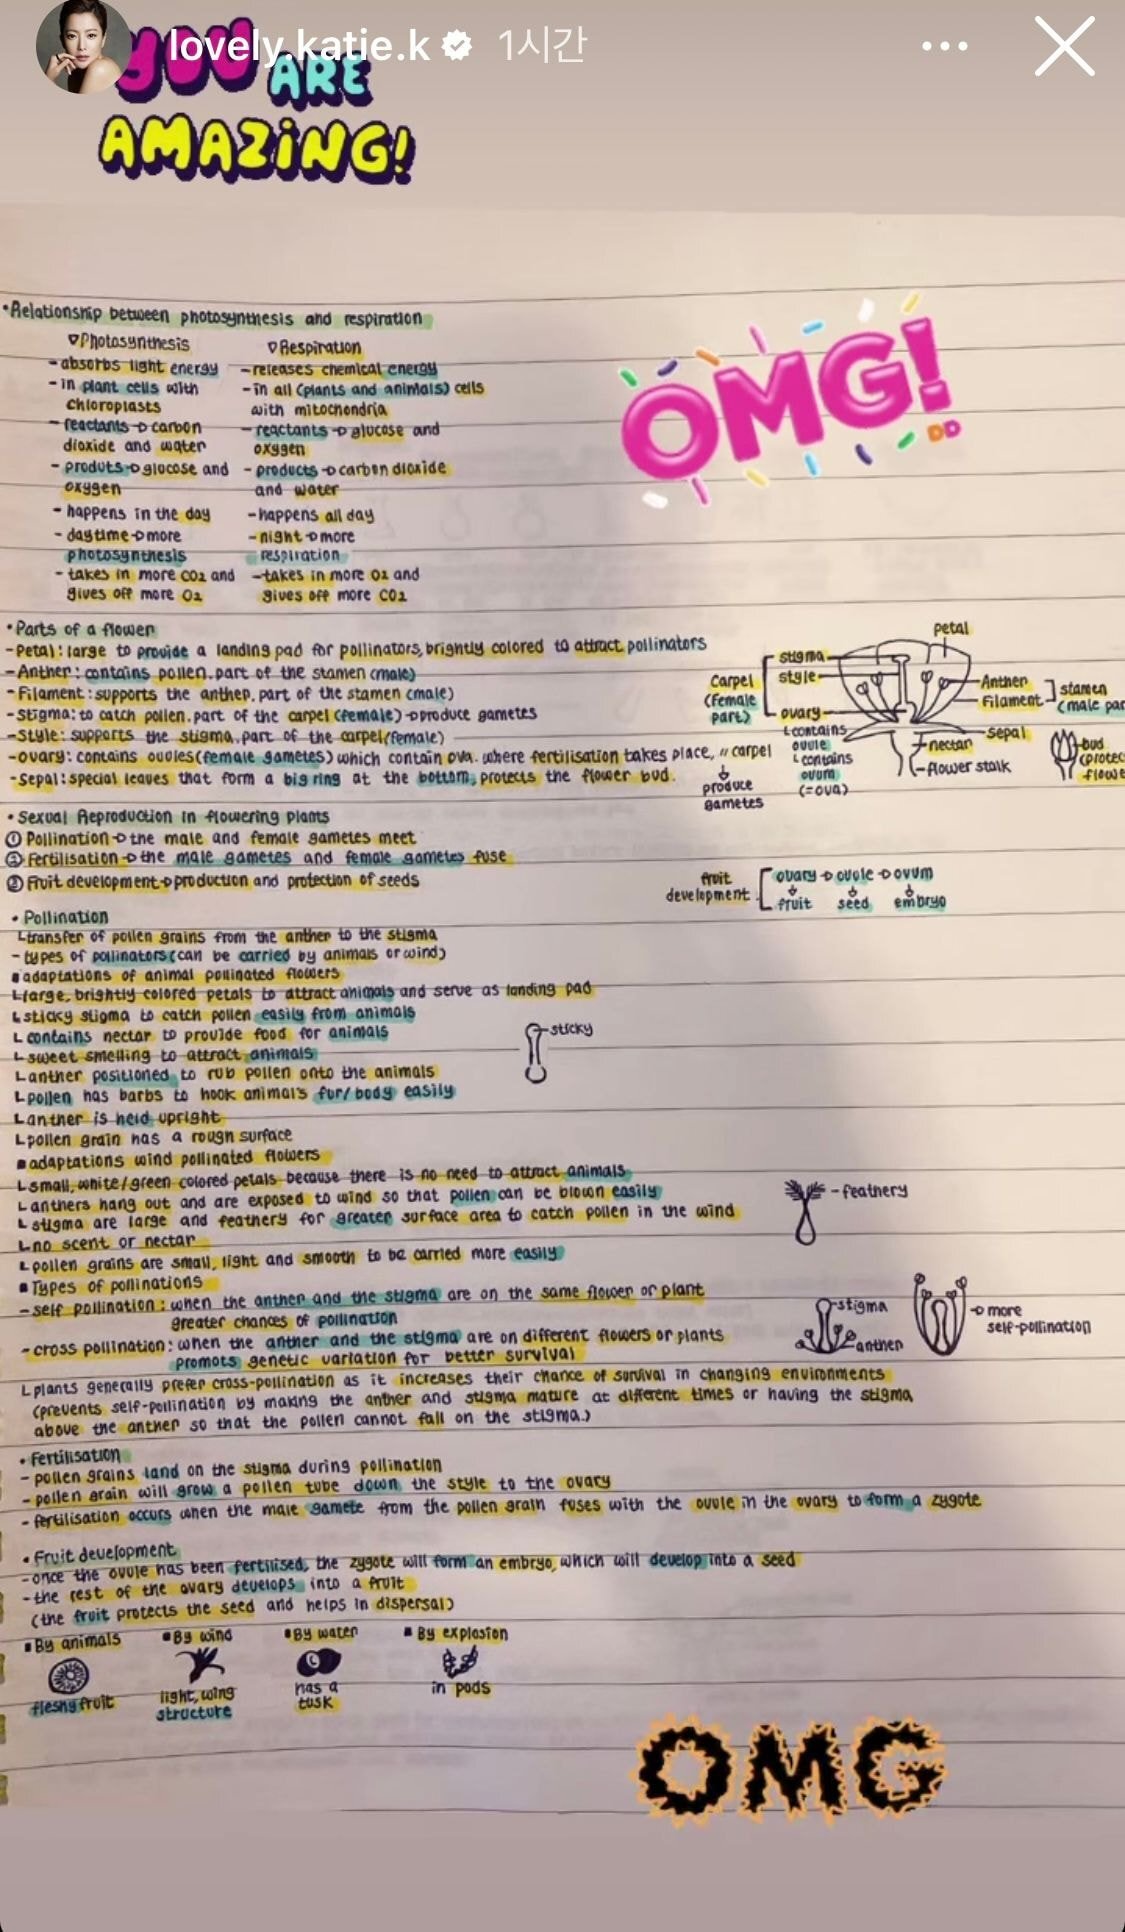 lovely.katie.k 1시간
YOU ARE
AMAZING!
OMG!
DD
•Relationship between photosynthesis and respiration
▽Photosynthesis
- absorbs light energy
- in plant cells with
chloroplasts
- reactants → carbon
dioxide and water
- produts → glucose and
oxygen
- happens in the day
- daytime → more
photosynthesis
- takes in more CO2 and
gives off more O2
▽Respiration
- releases chemical energy
- in all (plants and animals) cells
with mitochondria
- reactants → glucose and
oxygen
- products → carbon dioxide
and water
- happens all day
- night → more
respiration
- takes in more O2 and
gives off more CO2
• Parts of a flower
- Petal: large to provide a landing pad for pollinators, brightly colored to attract pollinators
- Anther: contains pollen. part of the stamen (male)
- Filament: supports the anther. part of the stamen (male)
- Stigma: to catch pollen. part of the carpel (female) → produce gametes
- Style: supports the stigma. part of the carpel (female)
- ovary: contains ovules (female gametes) which contain ova. where fertilisation takes place, " carpel
- Sepal: special leaves that form a big ring at the bottom, protects the flower bud.
produce
gametes
petal
Carpel
(female
part)
stigma
style
ovary
└contains
ovule
└contains
ovum
(=ova)
Anther
Filament
stamen
(male par
sepal
nectar
flower stalk
bud
(protec
flowe
• Sexual Reproduction in flowering plants
① Pollination → the male and female gametes meet
② Fertilisation → the male gametes and female gametes fuse
③ Fruit development → production and protection of seeds
fruit
development
ovary → ovule → ovum
fruit seed embryo
• Pollination
└transfer of pollen grains from the anther to the stigma
- types of pollinators (can be carried by animals or wind)
▪adaptations of animal pollinated flowers
└large, brightly colored petals to attract animals and serve as landing pad
└sticky stigma to catch pollen easily from animals
└contains nectar to provide food for animals
└sweet smelling to attract animals
└anther positioned to rub pollen onto the animals
└pollen has barbs to hook animal's fur/body easily
└anther is held upright
└pollen grain has a rough surface
sticky
▪adaptations wind pollinated flowers
└small, white/green colored petals because there is no need to attract animals
└anthers hang out and are exposed to wind so that pollen can be blown easily
└stigma are large and feathery for greater surface area to catch pollen in the wind
└no scent or nectar
└pollen grains are small, light and smooth to be carried more easily
- feathery
▪Types of pollinations
- self pollination: when the anther and the stigma are on the same flower or plant
greater chances of pollination
- cross pollination: when the anther and the stigma are on different flowers or plants
promots genetic variation for better survival
└plants generally prefer cross-pollination as it increases their chance of survival in changing environments
(prevents self-pollination by making the anther and stigma mature at different times or having the stigma
above the anther so that the pollen cannot fall on the stigma.)
stigma
anther
→ more
self-pollination
• Fertilisation
- pollen grains land on the stigma during pollination
- pollen grain will grow a pollen tube down the style to the ovary
- fertilisation occurs when the male gamete from the pollen grain fuses with the ovule in the ovary to form a zygote
• Fruit development
- once the ovule has been fertilised, the zygote will form an embryo, which will develop into a seed
- the rest of the ovary develops into a fruit
(the fruit protects the seed and helps in dispersal)
▪By animals
fleshy fruit
▪By wind
light, wing
structure
▪By water
has a
tusk
▪By explosion
in pods
OMG